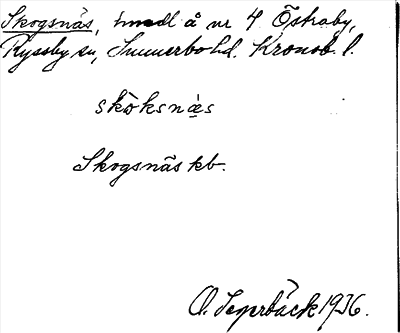 Skogsnäs, smedl å nr 4 Östraby,
Ryssby sn, Sunnerbo hd. Kronob. l.
skòksnæs
Skogsnäs kb.
O. Segerbäck 1936.